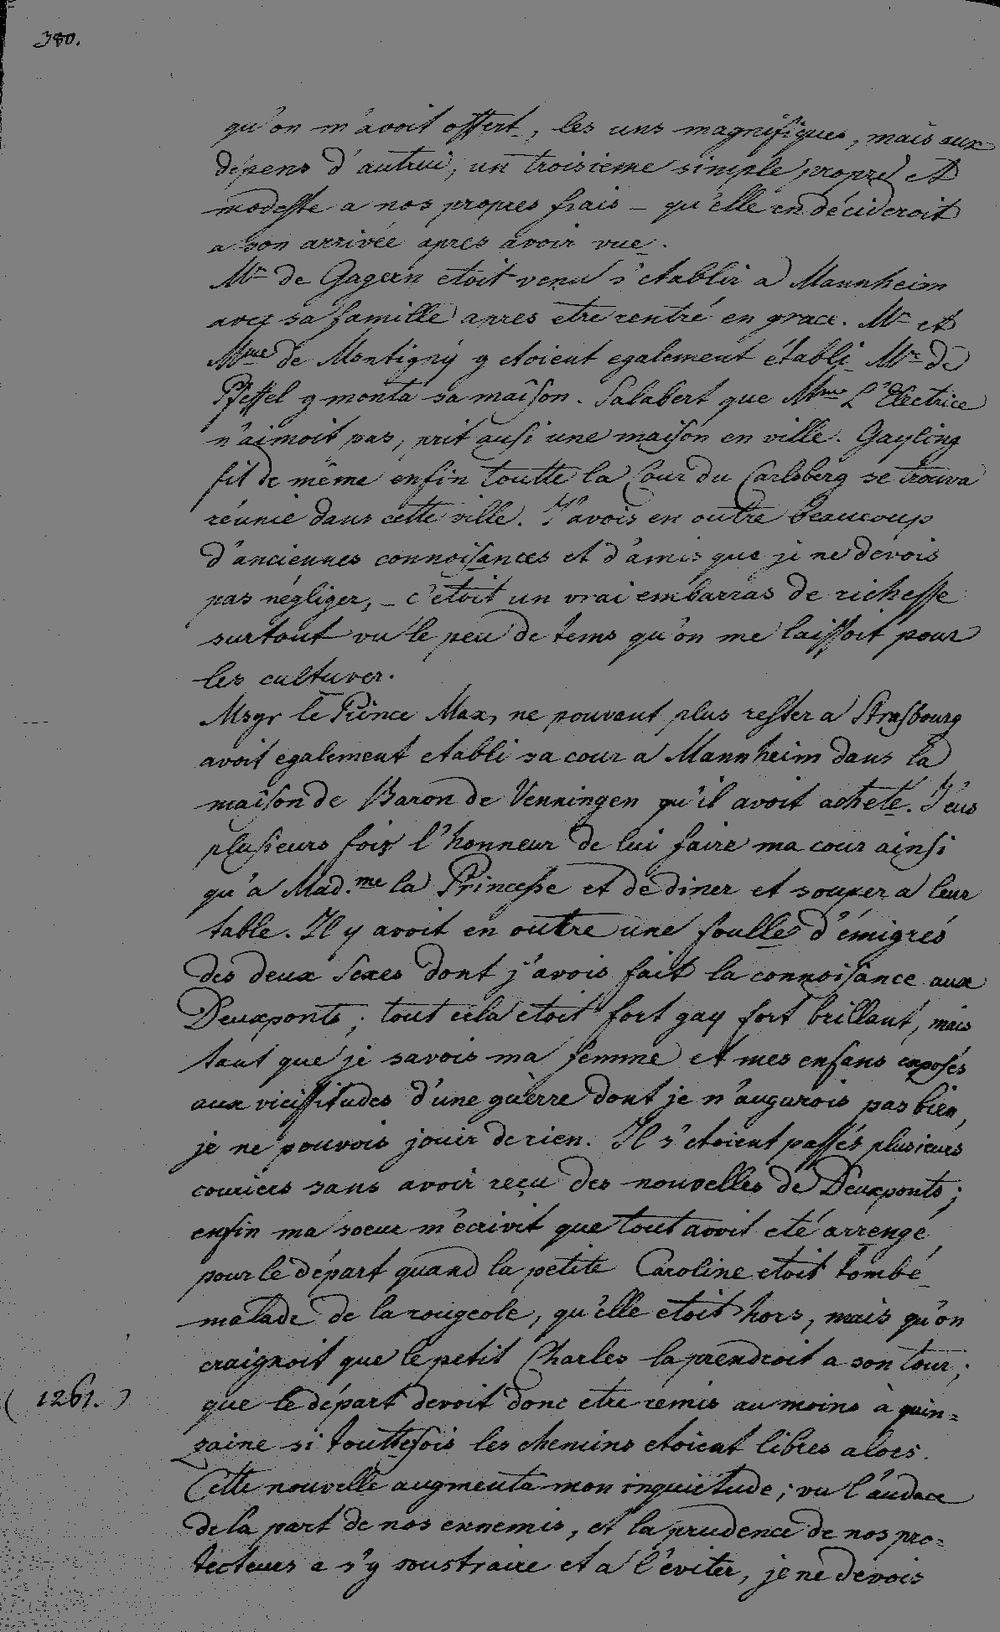 380.
qu'on m'avoit offert, les uns magnifiques, mais aux
depens d'autrui, un troisieme simple propre et
modeste a nos propres frais – qu'elle en décideroit
a son arrivée apres avoir vue.
Mr de Gagern etoit venu s'etablir a Mannheim
avec sa famille apres etre rentré en grace. Mr et
Mme de Montigny y etoient egalement établi. Mr de
Pfeffel y monta sa maison. Salabert que Mme L'Electrice
n'aimoit pas, prit ausi une maison en ville. Gayling
fit de même enfin toutte la Cour du Carlsberg se trouva
réunie dans cette ville. J'avois en outre beaucoup
d'anciennes connoisances et d'amis que je ne devois
pas négliger, – c'etoit un vrai embarras de richesse
surtout vu le peu de tems qu'on me laissoit pour
les cultuver.
Msgr le Prince Max, ne pouvant plus rester a Strasbourg
avoit egalement etabli sa cour a Mannheim dans la
maison de Baron de Venningen qu'il avoit acheté. J'eus
plusieurs fois l'honneur de lui faire ma cour ainsi
qu'a Mad.me la Princesse et de diner et souper a leur
table. Il y avoit en outre une foulle d'émigrés
des deux sexes dont j'avois fait la connoisance aux
Deuxponts; tout cela etoit fort gay fort brillant, mais
tant que je savois ma femme et mes enfans exposés
aux vicissitudes d'une guèrre dont je n'augurois pas bien,
je ne pouvois jouir de rien. Il s'etoient passés plusieurs
couriers sans avoir reçu des nouvelles de Deuxponts;
enfin ma soeur m'écrivit que tout avoit eté arrengé
pour le départ quand la petite Caroline etoit tombé
malade de la rougeole, qu'elle etoit hors, mais qu'on
craignoit que le petit Charles la prendroit a son tour;
(1261.) que le départ devoit donc etre remis au moins à quin=
zaine si touttefois les chemins etoient libres alors.
Cette nouvelle augmenta mon inquietude; vu l'audace
de la part de nos ennemis, et la prudence de nos pro=
tecteurs a s'y soustraire et a l'éviter, je ne devois